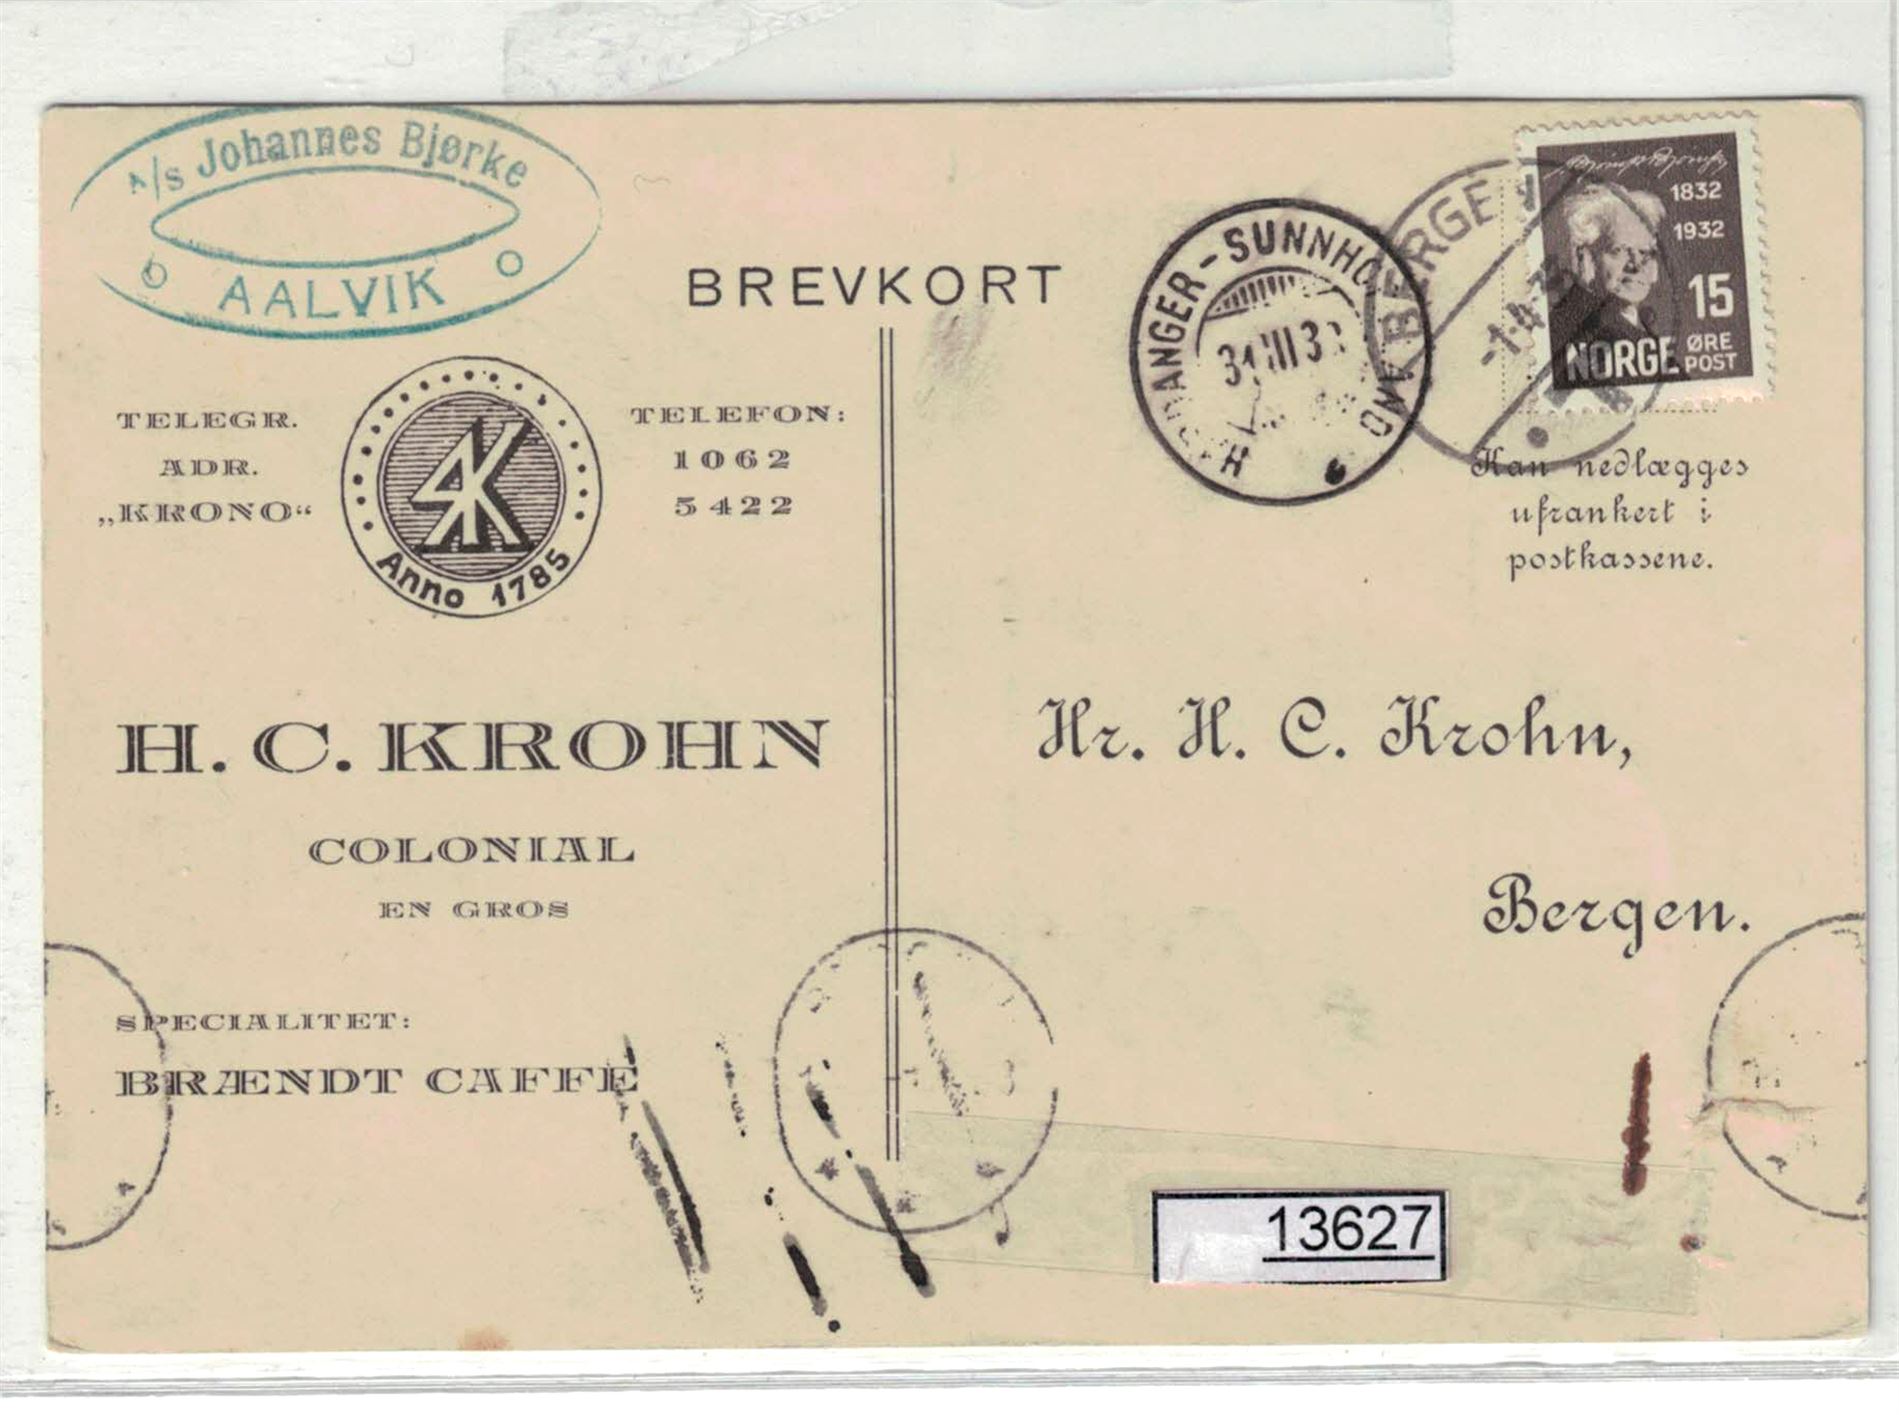 A/S Johannes Bjørke
AALVIK
BREVKORT
TELEGR.
ADR.
„KRONO“
Anno 1785
TELEFON:
1062
5422
H. C. KROHN
COLONIAL
EN GROS
SPECIALITET:
BRÆNDT CAFFE
HARDANGER-SUNNHORDLAND
31 III 3
BERGEN
-1.4.35
1832
1932
15
ØRE
NORGE POST
Kan nedlægges
ufrankert i
postkassene.
Hr. H. C. Krohn,
Bergen.
13627